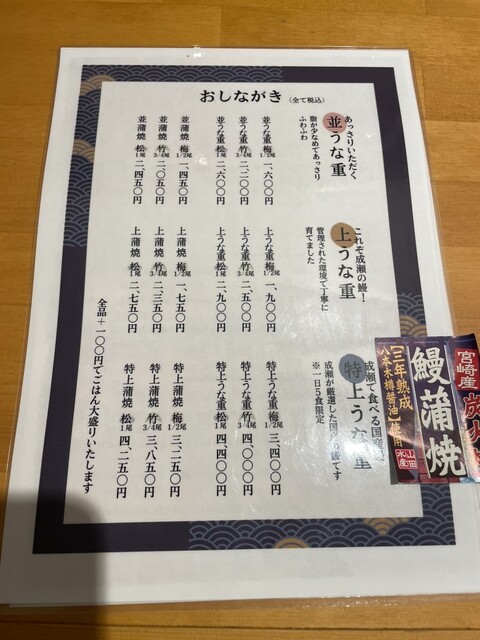 おしながき (全て税込)
あっさりいただく
並うな重
脂が少なめであっさり
ふわふわ
並うな重 梅 1/2尾 一、六〇〇円
並うな重 竹 3/4尾 二、二〇〇円
並うな重 松 1尾 二、六〇〇円
並蒲焼 梅 1/2尾 一、四五〇円
並蒲焼 竹 3/4尾 二、〇五〇円
並蒲焼 松 1尾 二、四五〇円
これぞ成瀬の鰻!
上うな重
管理された環境で丁寧に
育てました
上うな重 梅 1/2尾 一、九〇〇円
上うな重 竹 3/4尾 二、五〇〇円
上うな重 松 1尾 二、九〇〇円
上蒲焼 梅 1/2尾 一、七五〇円
上蒲焼 竹 3/4尾 二、三五〇円
上蒲焼 松 1尾 二、七五〇円
成瀬で食べる国産
特上うな重
成瀬が厳選した国
です
※一日5食限定
特上うな重 梅 1/2尾 三、四〇〇円
特上うな重 竹 3/4尾 四、〇〇〇円
特上うな重 松 1尾 四、四〇〇円
特上蒲焼 梅 1/2尾 三、二五〇円
特上蒲焼 竹 3/4尾 三、八五〇円
特上蒲焼 松 1尾 四、二五〇円
全品+一〇〇円でごはん大盛りいたします
宮崎産 炭火
鰻蒲焼
山田水産
【三年熟成
八本木樽醤油】使用